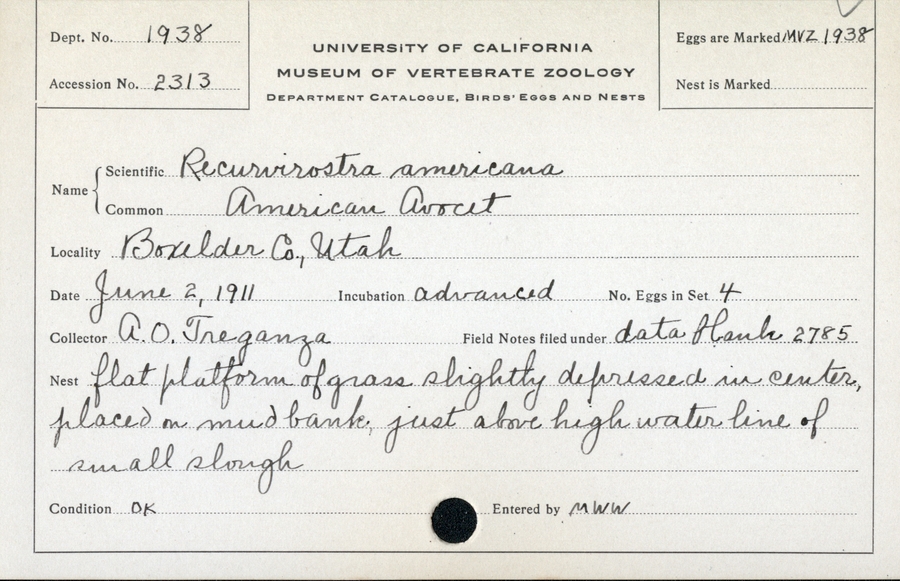 Dept. No. 1938
Accession No. 2313
UNIVERSITY OF CALIFORNIA
MUSEUM OF VERTEBRATE ZOOLOGY
DEPARTMENT CATALOGUE, BIRDS' EGGS AND NESTS
Eggs are Marked MVZ 1938
Nest is Marked
Name
Scientific Recurvirostra americana
Common American Avocet
Locality Boxelder Co., Utah
Date June 2, 1911 Incubation advanced No. Eggs in Set 4
Collector A.O. Treganza Field Notes filed under data blank 2785
Nest flat platform of grass slightly depressed in center,
placed on mud bank, just above high water line of
small slough
Condition OK Entered by MWW